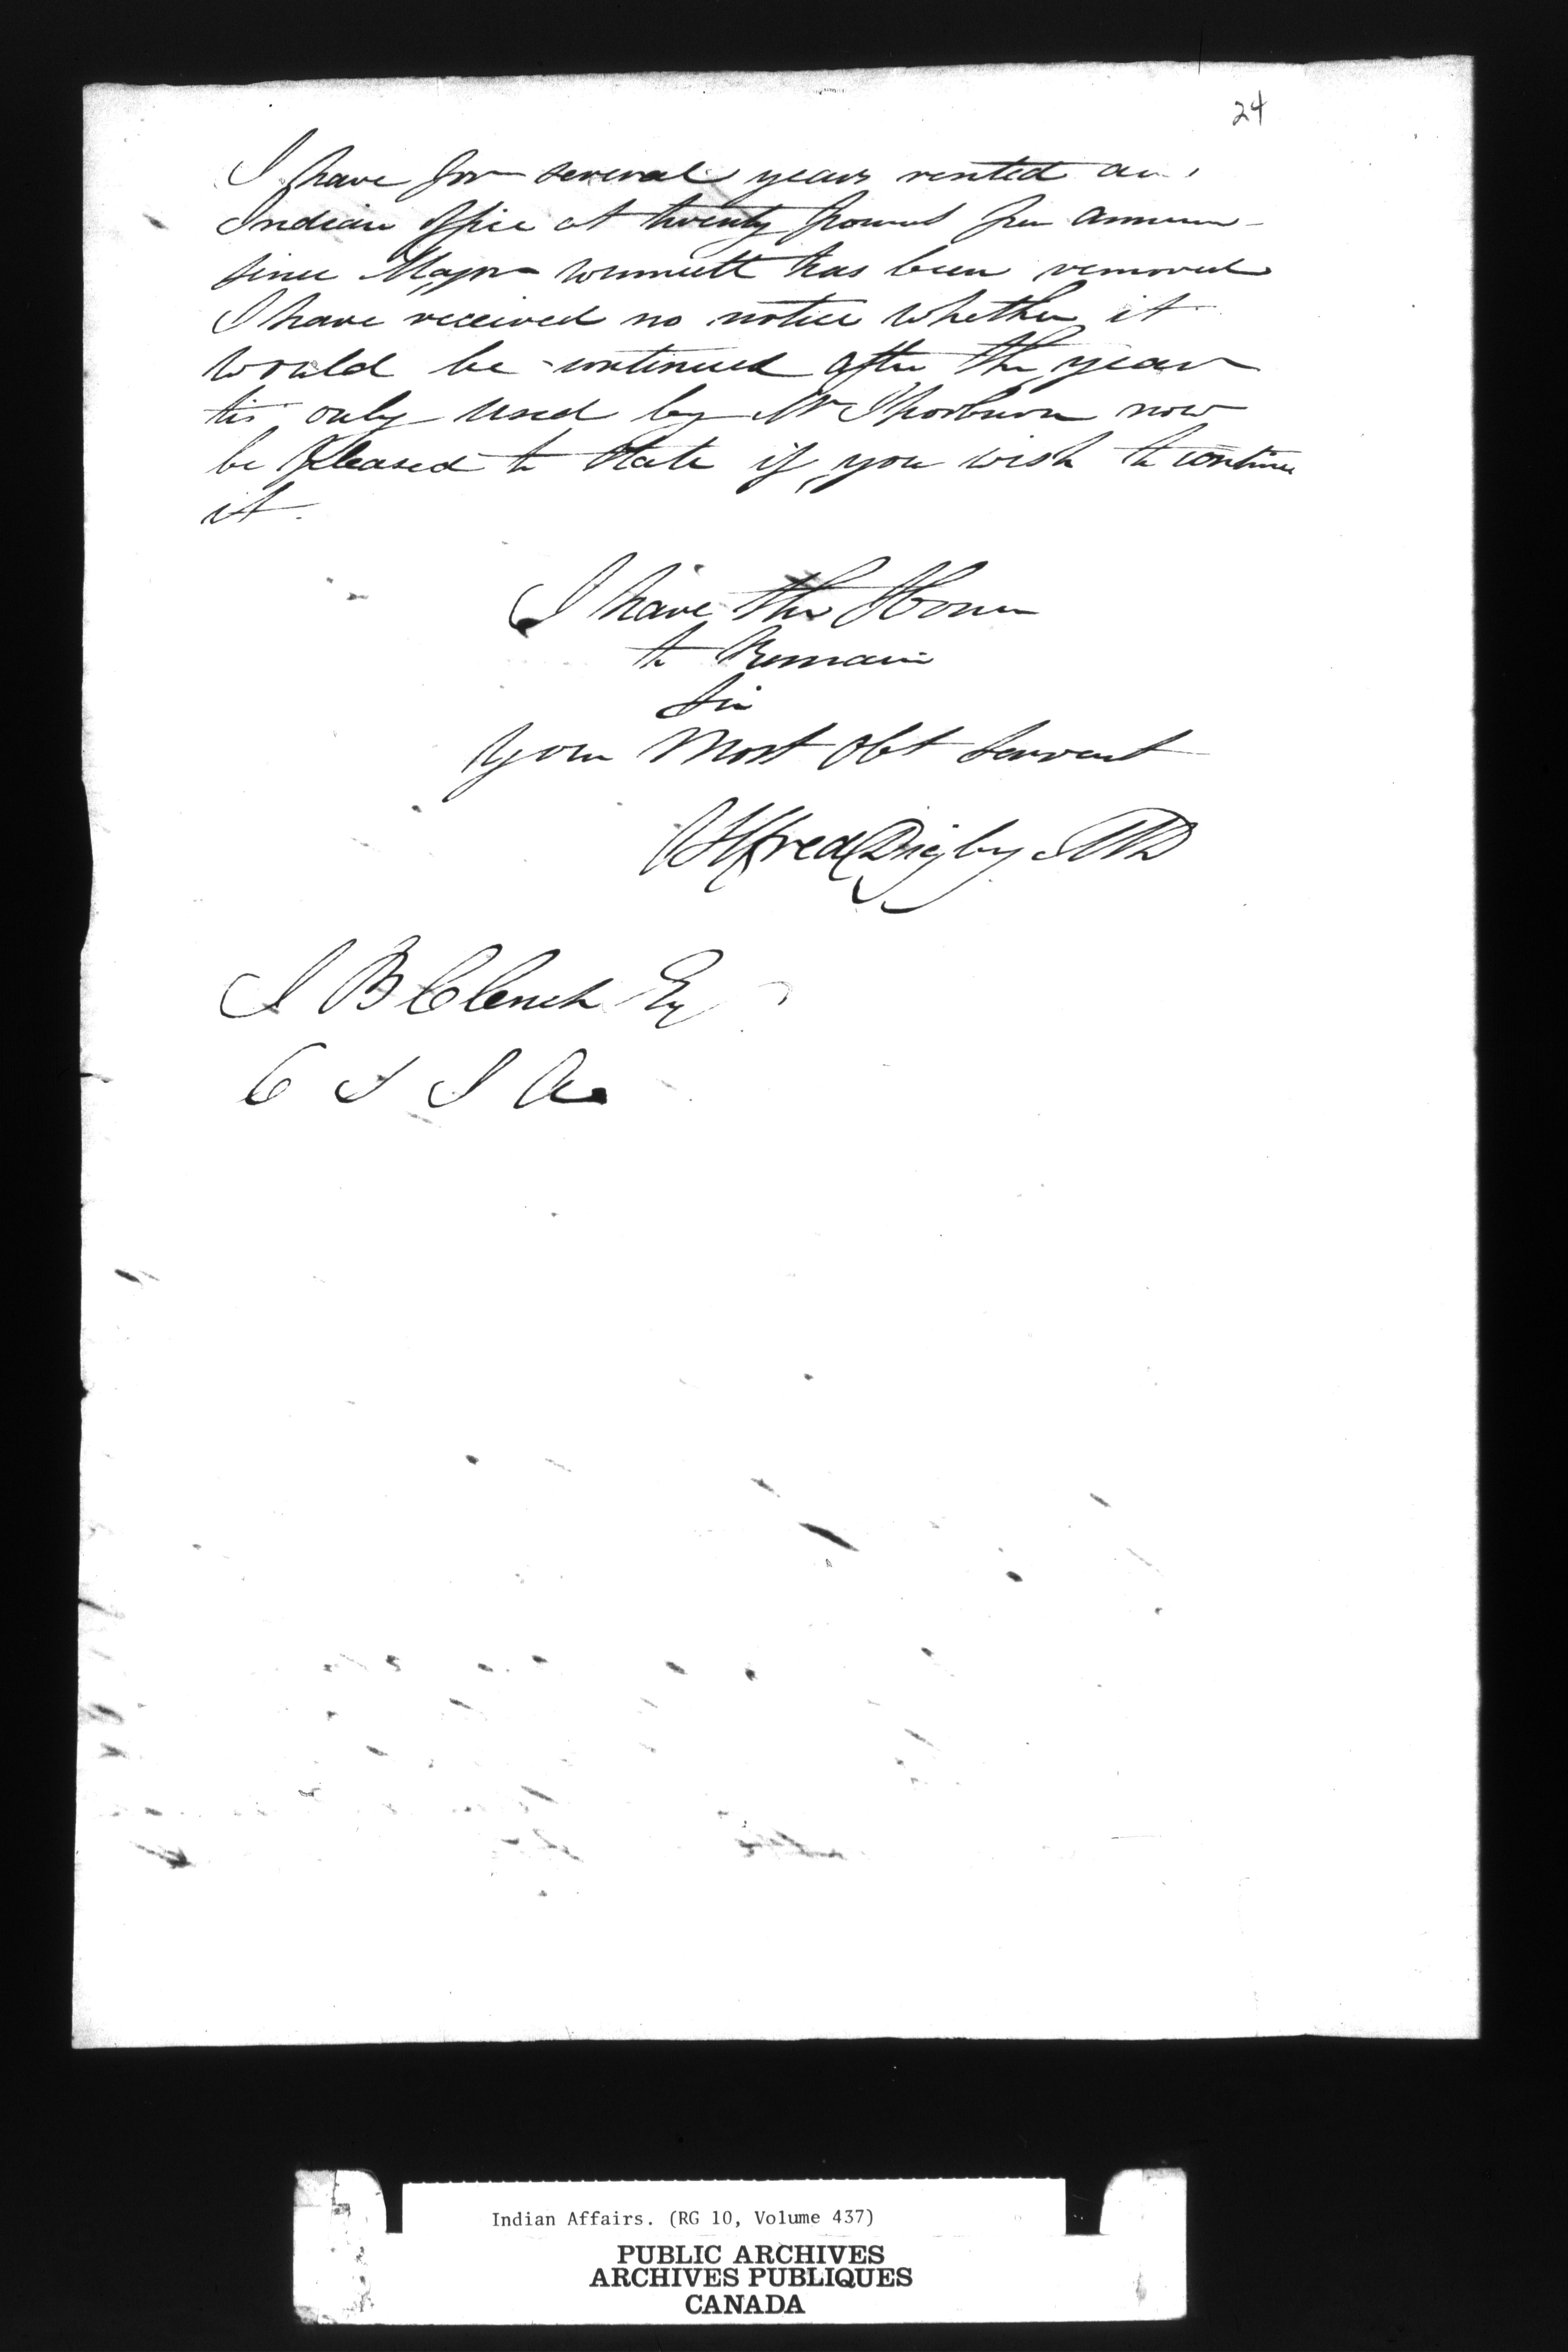 24
I have for several years rented an
Indian Office at twenty pound per annum
since Major Winniett has been removed
I have received no notice whether it
would be continued after the year
tis only used by Mr Thorburn now
be pleased to State if you wish to continue
it.
I have the Honor
to Remain
Sir
Your Most Obt Servant
Alfred Digby MD
J B Clench Esq
C S I A
Indian Affairs. (RG 10, Volume 437)
PUBLIC ARCHIVES
ARCHIVES PUBLIQUES
CANADA